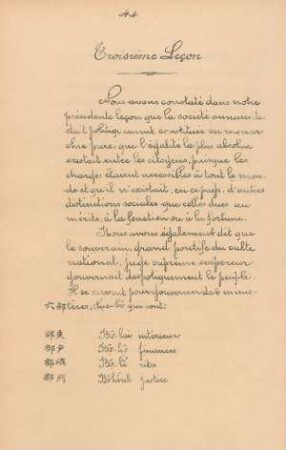 44
Troisième Leçon
Nous avons constaté dans notre
précédente leçon que la société annamite
était politiquement constituée en monar
chie pure, que l'égalité la plus absolue
existait entre les citoyens, puisque les
charges étaient accessibles à tout le mon
de et qu'il n'existait, en ce pays, d'autres
distinctions sociales que celles dues au
mérite, à la fonction ou à la fortune.
Nous avons également dit que
le souverain, grand pontife du culte
national, juge suprême empereur
gouvernait despotiquement le peuple.
Il se servait pour gouverner de 6 minis
六部 tères, qui sont:
部吏 Bộ-lại intérieur
部戶 Bộ-hộ finances
部禮 Bộ-lễ rites
部刑 Bộ-hình justice